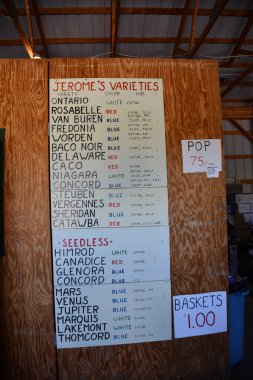 JEROME'S VARIETIES
VARIETY COLOR USE
ONTARIO WHITE EATING
ROSABELLE RED
VAN BUREN BLUE
FREDONIA BLUE
WORDEN BLUE
BACO NOIR BLUE
DELAWARE RED
CACO RED
NIAGARA WHITE
CONCORD BLUE
STEUBEN BLUE
VERGENNES RED
SHERIDAN BLUE
CATAWBA RED
-SEEDLESS-
HIMROD WHITE EATING
CANADICE RED EATING
GLENORA BLUE EATING
CONCORD BLUE EATING, PIE
MARS BLUE EATING, PIE
VENUS BLUE EATING, PIE
JUPITER BLUE EATING, PIE
MARQUIS WHITE EATING
LAKEMONT WHITE EATING
THOMCORD BLUE EATING, PIE
POP
75¢
BASKETS
$1.00